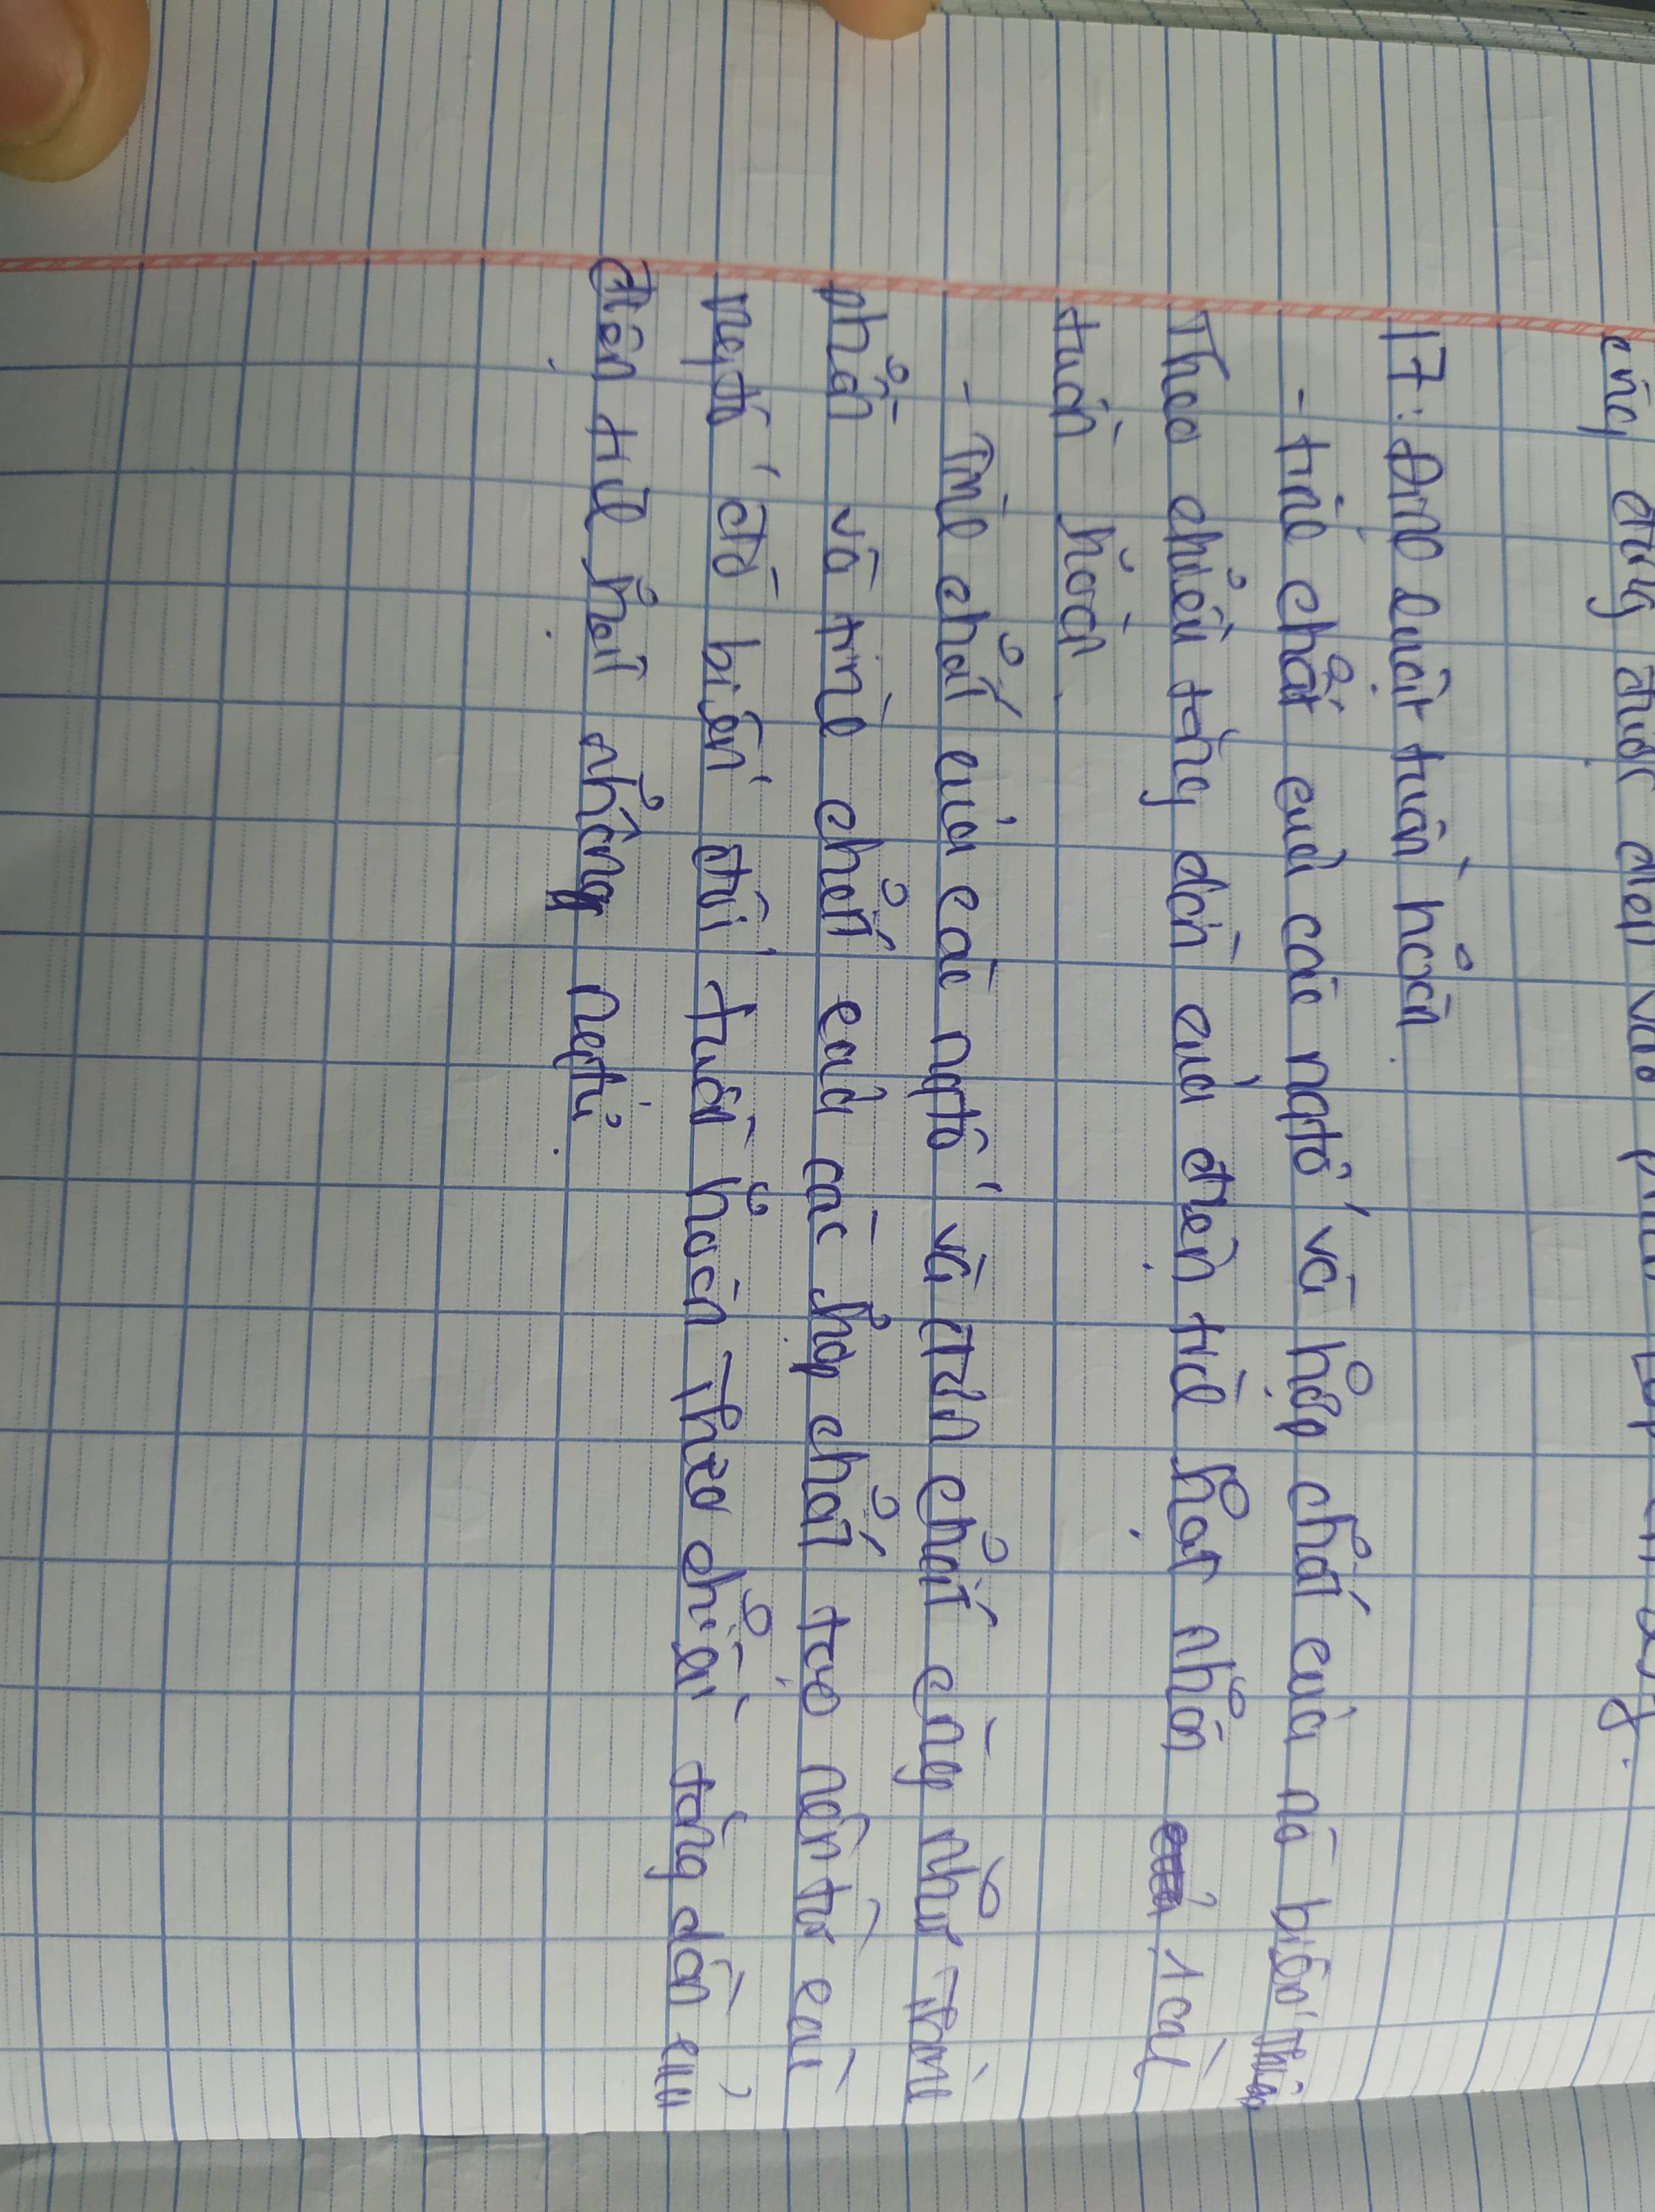 cũng đúng được điền vào
17: Định luật tuần hoàn.
- tính chất của các ngtố và hợp chất của nó biến thiên
Theo chiều tăng dần của điện tích hạt nhân 1 cách
tuần hoàn.
- Tính chất của các ngtố và đơn chất cũng như Thành
phần và tính chất của các hợp chất tạo nên từ các
ngtố đó biến đổi tuần hoàn Theo chiều tăng dần của
điện tích hạt nhân ngtử.